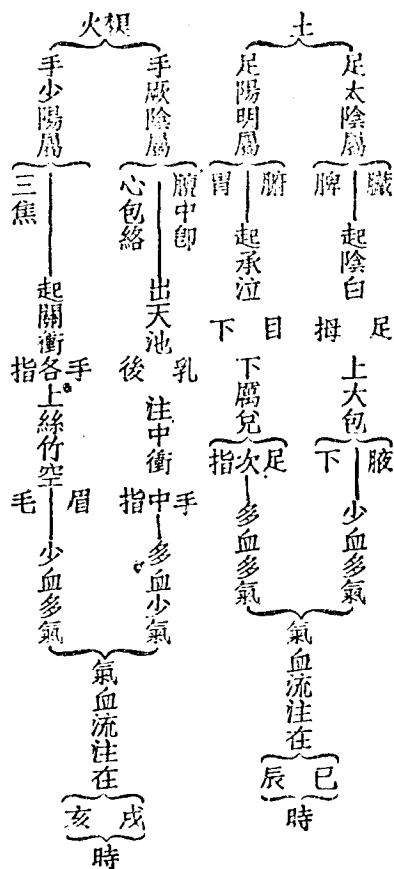 土
足太陰屬
臟
脾
起陰白
足拇
上大包
腋下
少血多氣
足陽明屬
腑
胃
起承泣
目下
下厲兌
足次指
多血多氣
氣血流注在
巳
辰
時
相火
手厥陰屬
膻中即
心包絡
出天池
乳後
注中衝
手中指
多血少氣
手少陽屬
三焦
起關衝
手各指
上絲竹空
眉毛
少血多氣
氣血流注在
戌
亥
時